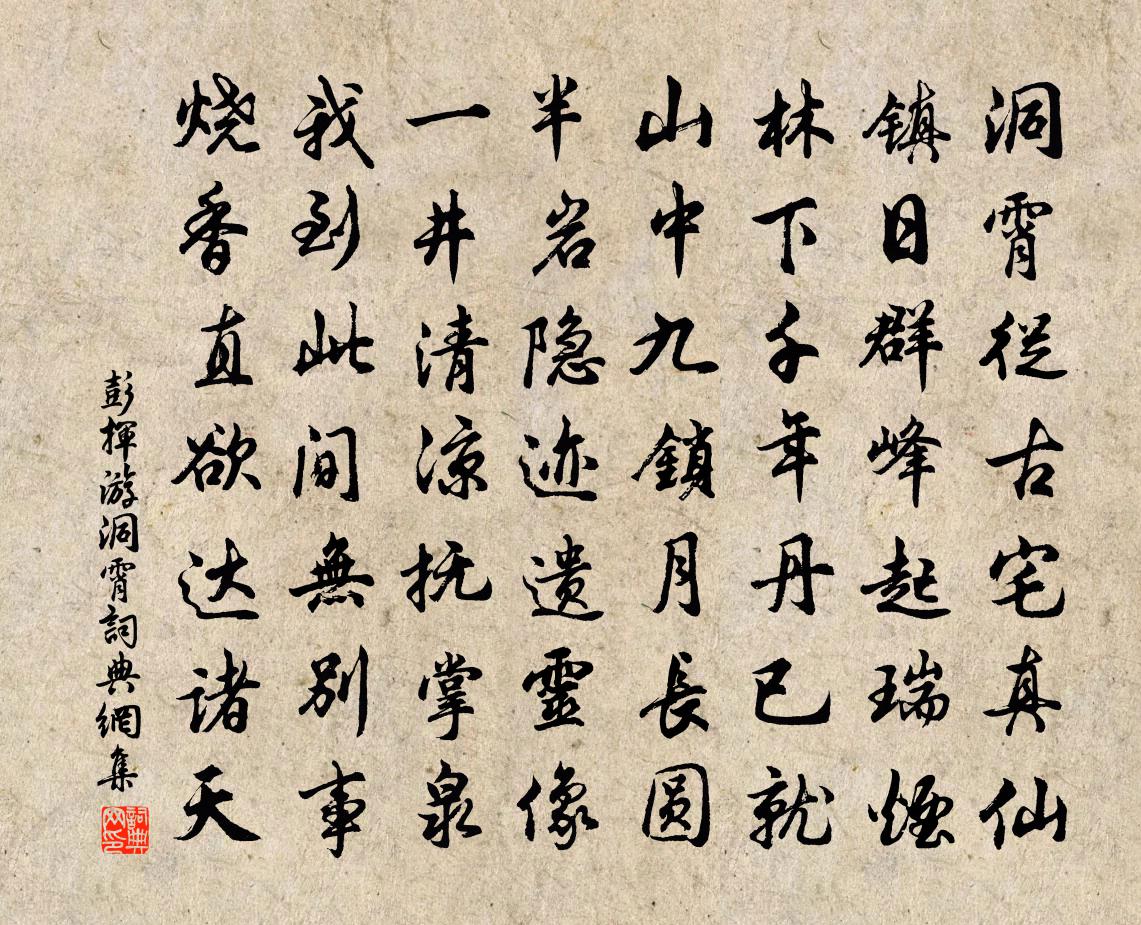 洞霄從古宅真仙
镇日群峰起瑞煙
林下千年丹已就
山中九鎖月長圆
半岩隐迹遗靈像
一井清凉抚掌泉
我到此间無别事
烧香直欲达诸天
彭揮游洞霄詞典網集
詞典网印